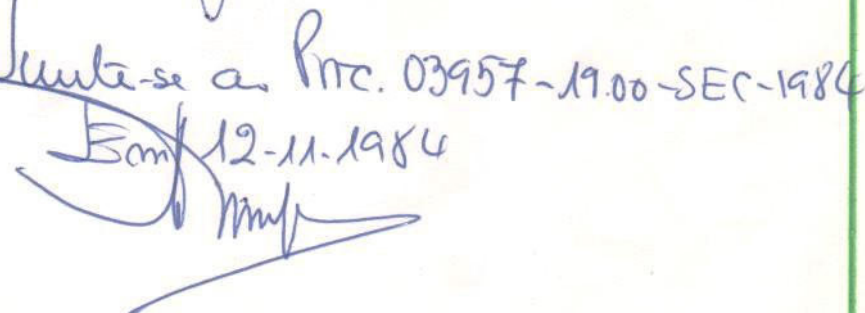 Junte-se ao Proc. 03957-19.00-SEC-1984
Em 12-11-1984